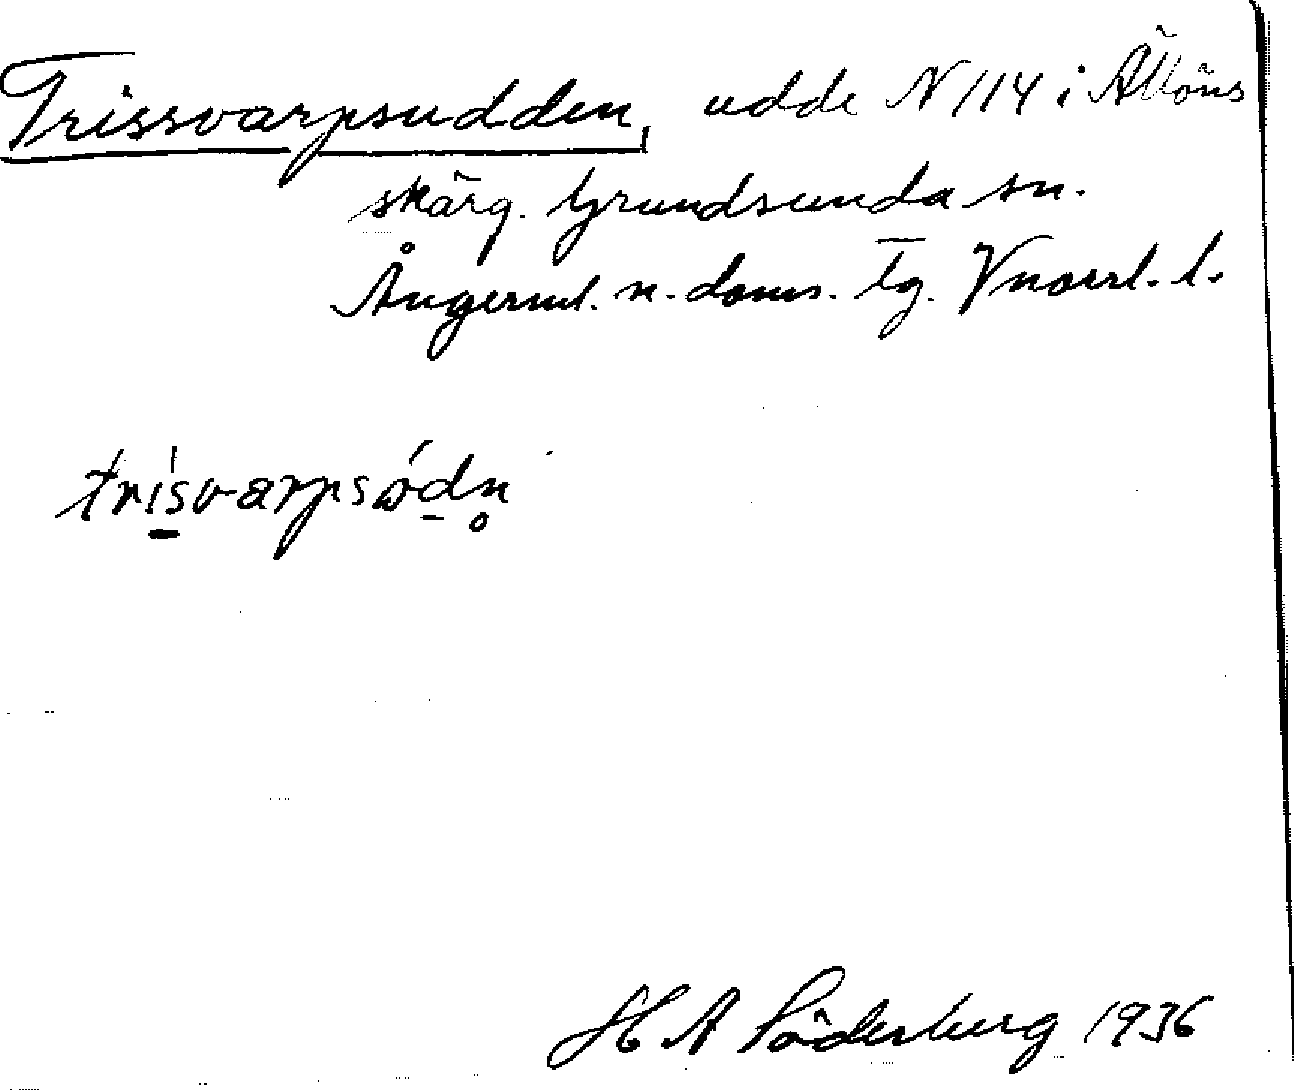 Trissvarpsudden, udde N 114 i Ällöns
skärg. Grundsunda sn.
Ångerml. n. doms. Tg. Vnorrl. l.
trisvarpsωdn̥
H A Söderberg 1936